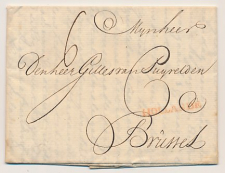 Mynheer
Den heer Gilles van Puyvelden
Brüssel